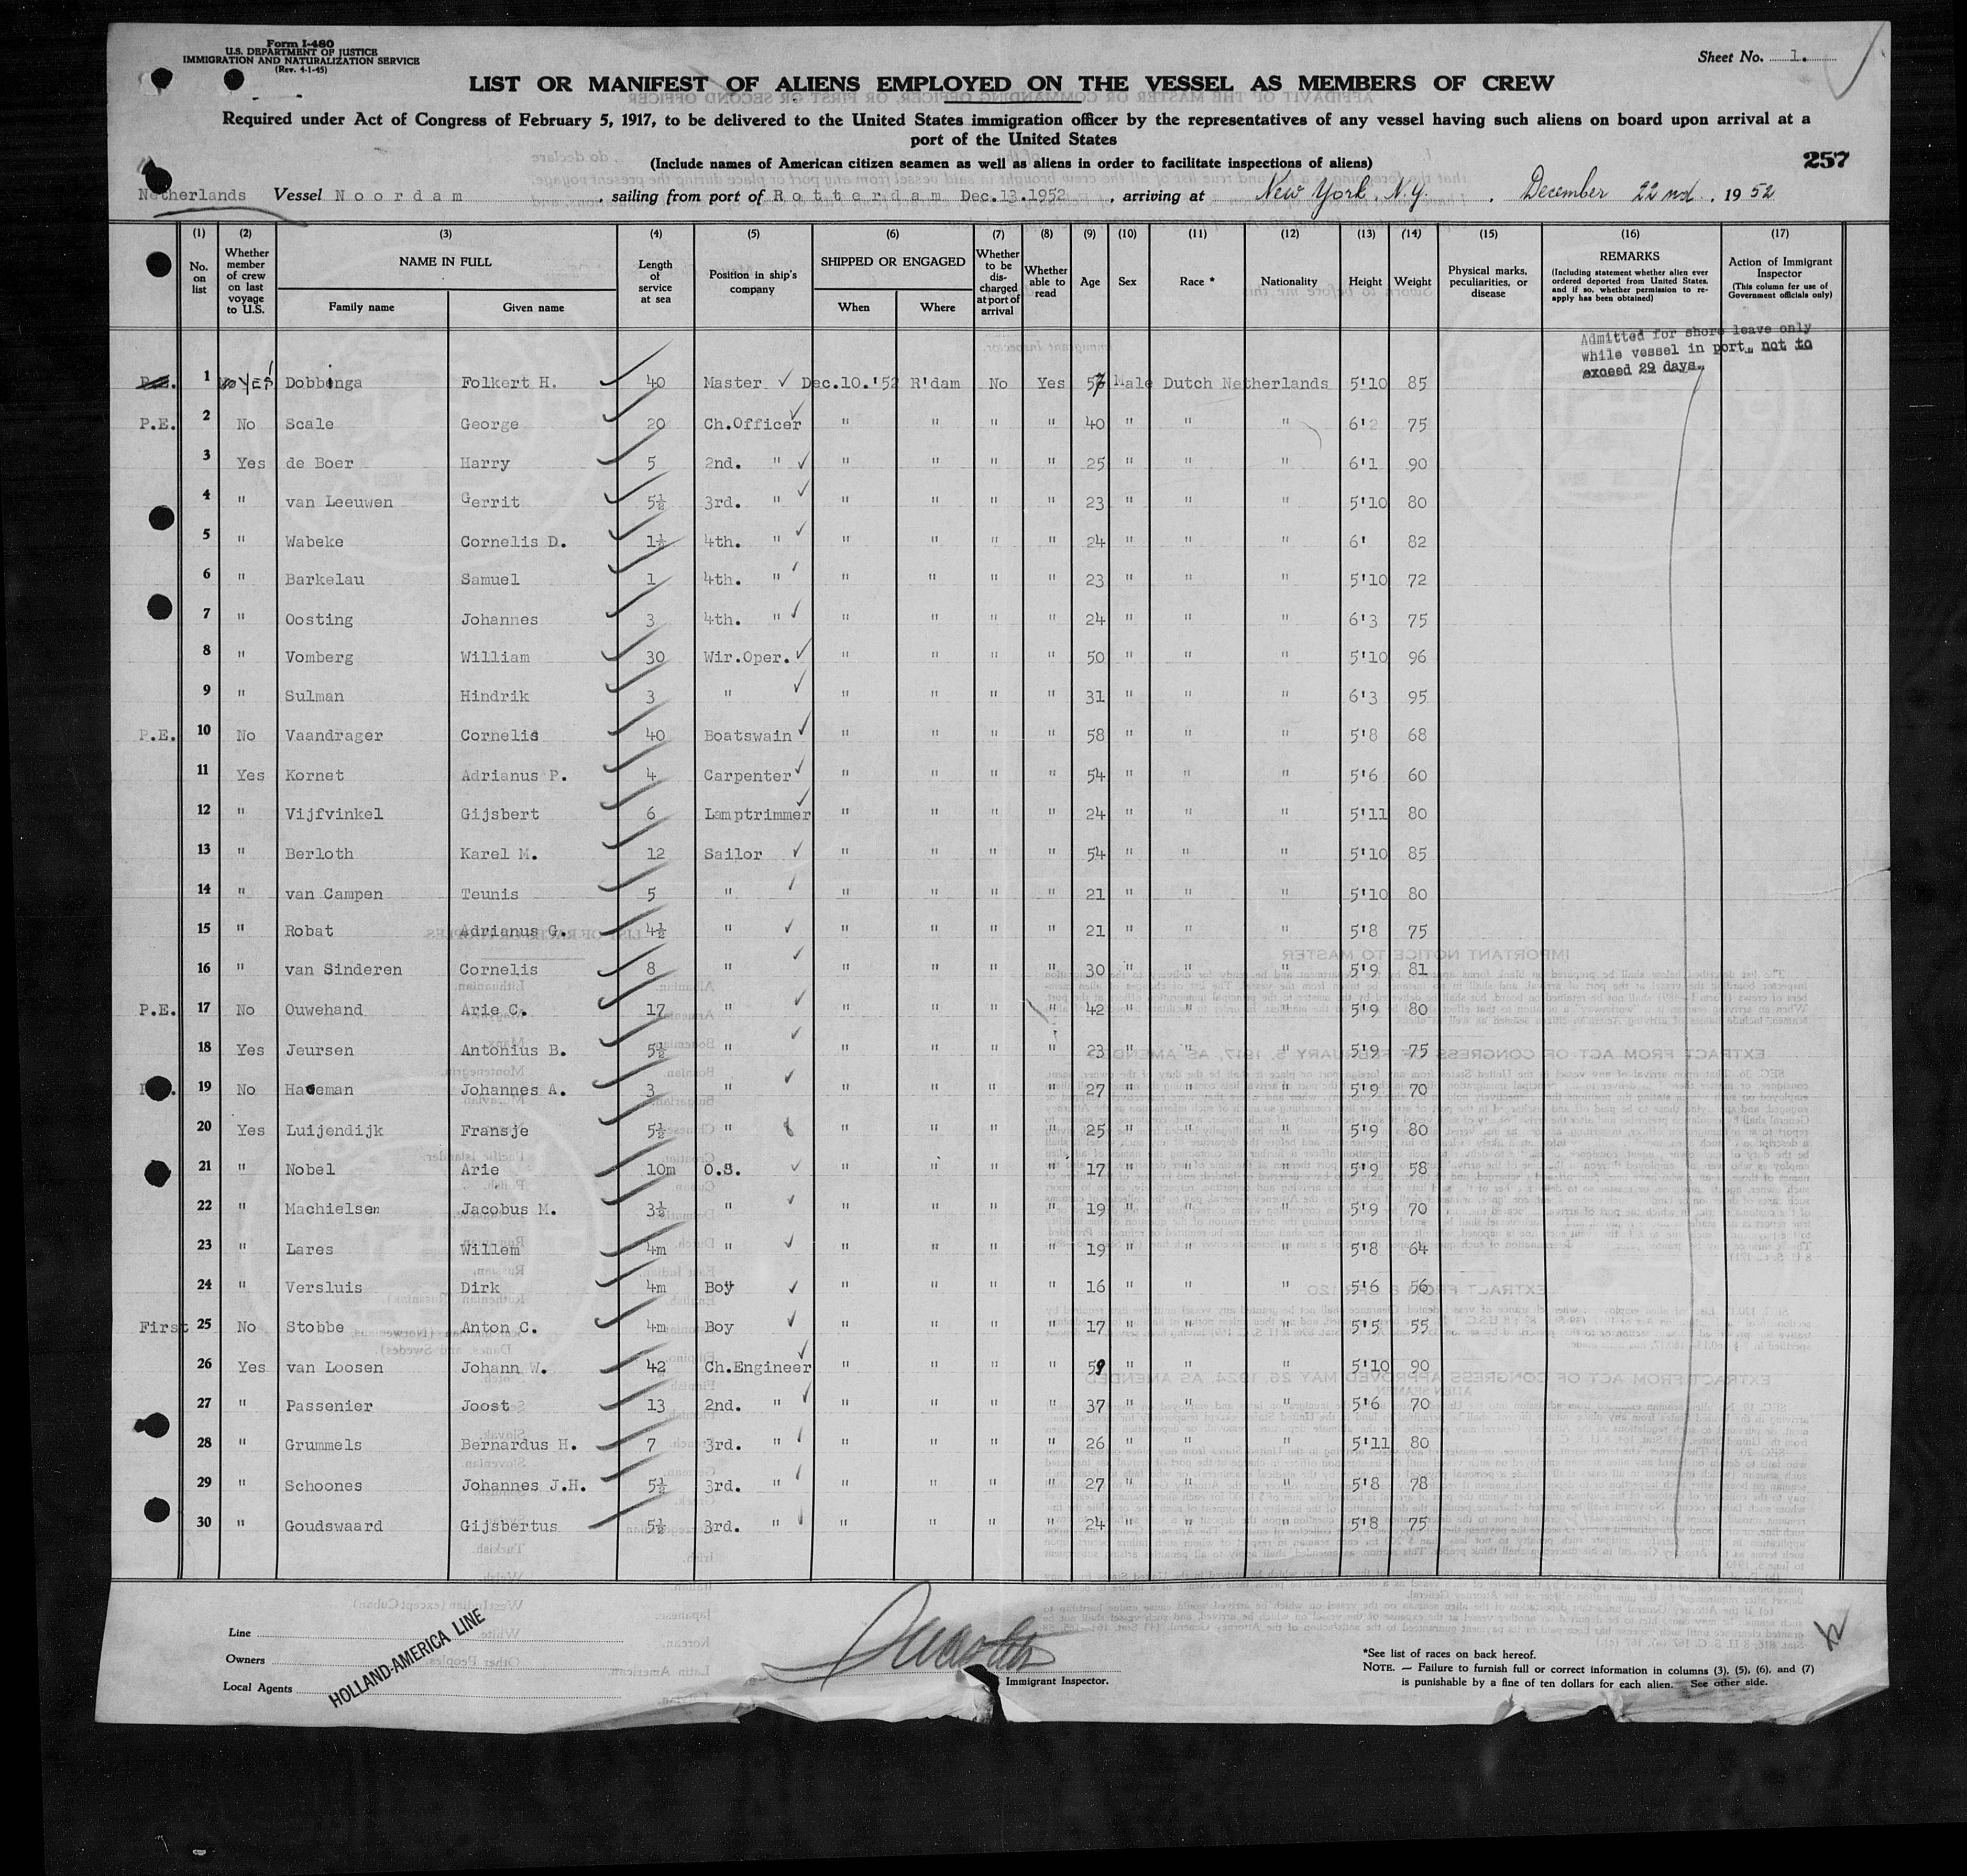 Form I-480
U.S. DEPARTMENT OF JUSTICE
IMMIGRATION AND NATURALIZATION SERVICE
(Rev. 4-1-45)
Sheet No. 1.
LIST OR MANIFEST OF ALIENS EMPLOYED ON THE VESSEL AS MEMBERS OF CREW
Required under Act of Congress of February 5, 1917, to be delivered to the United States immigration officer by the representatives of any vessel having such aliens on board upon arrival at a
port of the United States
(Include names of American citizen seamen as well as aliens in order to facilitate inspections of aliens)
257
Netherlands Vessel Noordam, sailing from port of Rotterdam Dec.13.1952, arriving at New York, N.Y., December 22nd, 1952
(1) (2) (3) (4) (5) (6) (7) (8) (9) (10) (11) (12) (13) (14) (15) (16) (17)
No. on list
Whether member of crew on last voyage to U.S.
NAME IN FULL
Family name Given name
Length of service at sea
Position in ship's company
SHIPPED OR ENGAGED
When Where
Whether to be discharged at port of arrival
Whether able to read
Age Sex Race * Nationality Height Weight
Physical marks, peculiarities, or disease
REMARKS
(Including statement whether alien ever ordered deported from United States, and if so, whether permission to re-apply has been obtained)
Action of Immigrant Inspector
(This column for use of Government officials only)
Admitted for shore leave only
while vessel in port, not to
exceed 29 days.
1 Yes Dobbenga Folkert H. 40 Master Dec.10.'52 R'dam No Yes 57 Male Dutch Netherlands 5'10 85
P.E. 2 No Scale George 20 Ch.Officer " " " " 40 " " " 6'2 75
3 Yes de Boer Harry 5 2nd. " " " " " 25 " " " 6'1 90
4 " van Leeuwen Gerrit 5½ 3rd. " " " " " 23 " " " 5'10 80
5 " Wabeke Cornelis D. 1½ 4th. " " " " " 24 " " " 6' 82
6 " Barkelau Samuel 1 4th. " " " " " 23 " " " 5'10 72
7 " Oosting Johannes 3 4th. " " " " " 24 " " " 6'3 75
8 " Vomberg William 30 Wir.Oper. " " " " 50 " " " 5'10 96
9 " Sulman Hindrik 3 " " " " " 31 " " " 6'3 95
P.E. 10 No Vaandrager Cornelis 40 Boatswain " " " " 58 " " " 5'8 68
11 Yes Kornet Adrianus P. 4 Carpenter " " " " 54 " " " 5'6 60
12 " Vijfvinkel Gijsbert 6 Lamptrimmer " " " " 24 " " " 5'11 80
13 " Berloth Karel M. 12 Sailor " " " " 54 " " " 5'10 85
14 " van Campen Teunis 5 " " " " " 21 " " " 5'10 80
15 " Robat Adrianus G. 4½ " " " " " 21 " " " 5'8 75
16 " van Sinderen Cornelis 8 " " " " " 30 " " " 5'9 81
P.E. 17 No Ouwehand Arie C. 17 " " " " " 42 " " " 5'9 80
18 Yes Jeursen Antonius B. 5½ " " " " " 23 " " " 5'9 75
19 No Johannes A. 3 " " " " " 27 " " " 5'9 70
20 Yes Luijendijk Fransje 5½ " " " " " 25 " " " 5'9 80
21 " Nobel Arie 10m O.S. " " " " 17 " " " 5'9 58
22 " Machielsen Jacobus M. 3½ " " " " " 19 " " " 5'9 70
23 " Lares Willem 4m " " " " " 19 " " " 5'8 64
24 " Versluis Dirk 4m Boy " " " " 16 " " " 5'6 56
First 25 No Stobbe Anton C. 4m Boy " " " " 17 " " " 5'5 55
26 Yes van Loosen Johann W. 42 Ch.Engineer " " " " 59 " " " 5'10 90
27 " Passenier Joost 13 2nd. " " " " " 37 " " " 5'6 70
28 " Grummels Bernardus H. 7 3rd. " " " " " 26 " " " 5'11 80
29 " Schoones Johannes J.H. 5½ 3rd. " " " " " 27 " " " 5'8 78
30 " Goudswaard Gijsbertus 5½ 3rd. " " " " " 24 " " " 5'8 75
Line
Owners
Local Agents
HOLLAND-AMERICA LINE
Immigrant Inspector.
*See list of races on back hereof.
NOTE. — Failure to furnish full or correct information in columns (3), (5), (6), and (7)
is punishable by a fine of ten dollars for each alien. See other side.